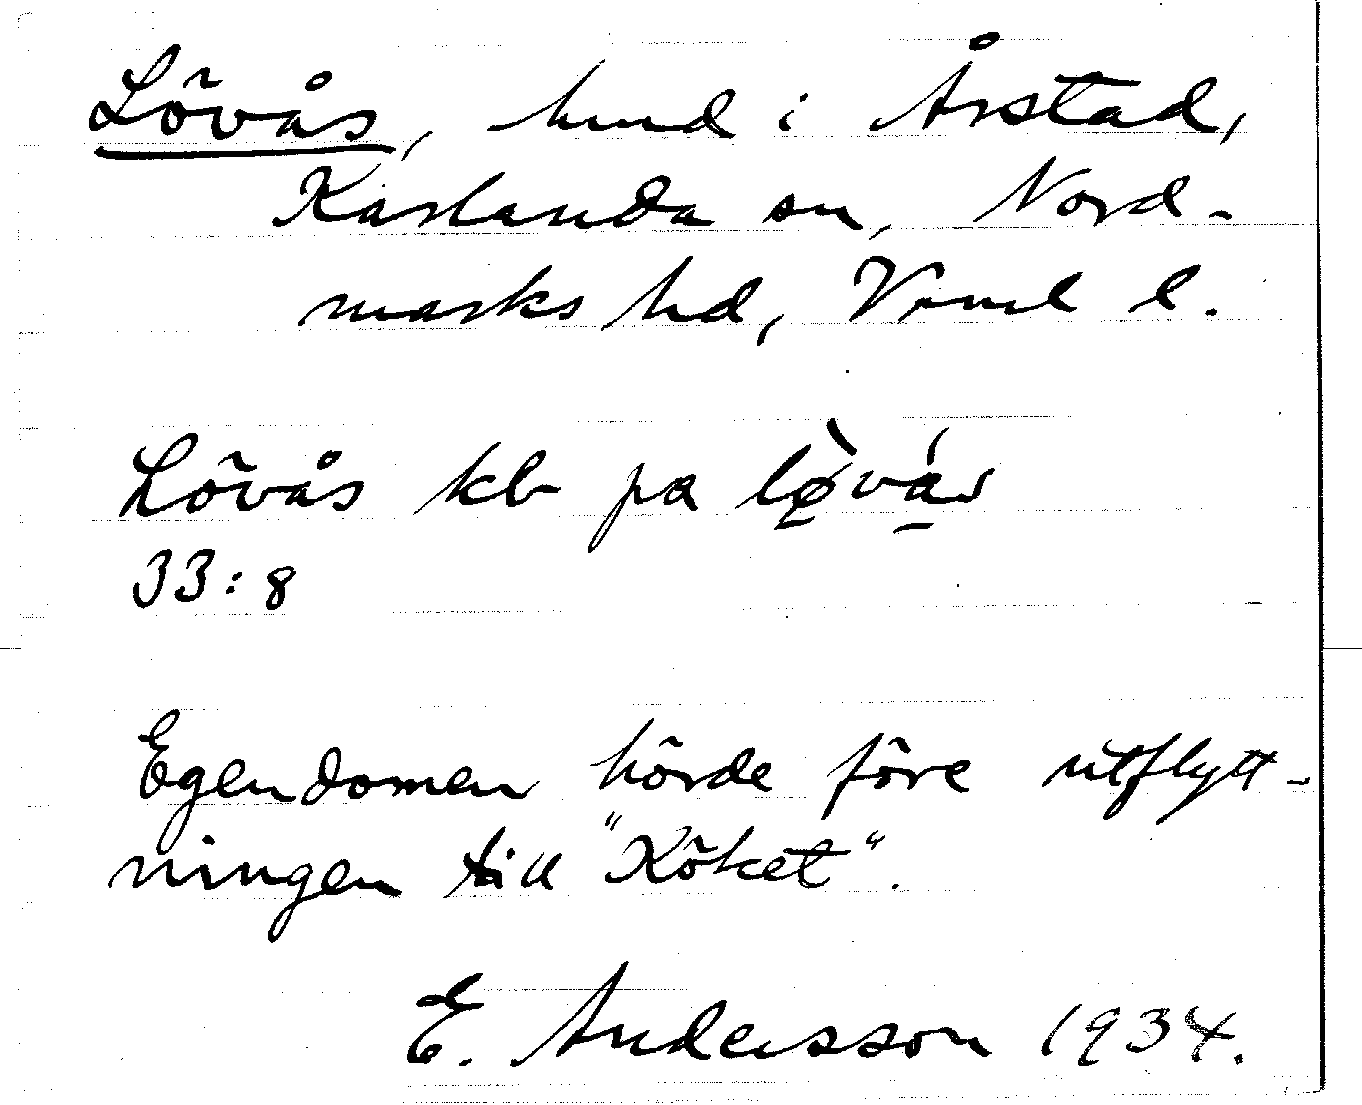 Lövås, hmd i Årstad,
Karlanda sn, Nord-
marks hd, Vrml l.
Lövås kb pa lø̱̀vá̱s
33:8
Egendomen hörde före utflytt-
ningen till "Köket".
E. Andersson 1934.